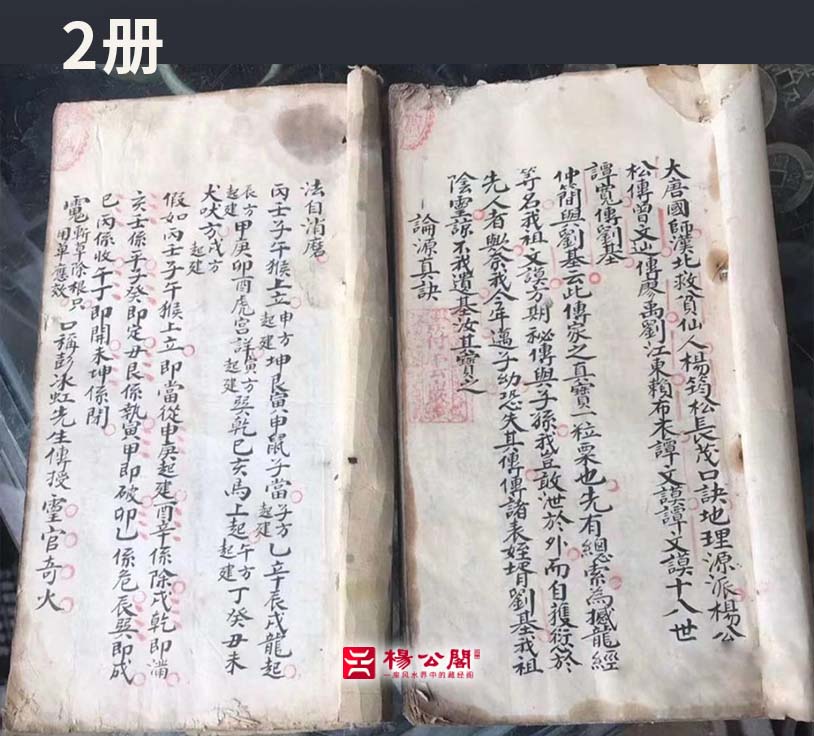 2册
大唐國師漠北救貧仙人楊筠松長茂口訣地理源派楊公
松傳曾文辿傳廖禹劉江東賴布衣譚文謨譚文謨十八世
譚寬傳劉基
仲簡與劉基云此傳家之真寶一粒栗也先有總索為撼龍經
等名我祖文謨方期秘傳與子孫我豈敢泄於外而自獲愆於
先人者歟奈我今年邁子幼恐失其傳傳諸表姪壻劉基我祖
陰靈諒不我遺基汝其寶之
論源真訣
法自消磨
丙壬子午猴上立申方起建坤艮寅申鼠子當子方起建乙辛辰戌龍起
辰方起建甲庚卯酉虎宮詳寅方起建巽乾巳亥馬上起午方起建丁癸丑未
犬吠方戌方起建
假如丙壬子午猴上立即當從申庚起建酉辛係除戌乾即滿
亥壬係平子癸即定丑艮係執寅甲即破卯乙係危辰巽即成
巳丙係收午丁即開未坤係閉
斬草除根只用單應效 口稱彭冰虹先生傳授靈官奇火
楊公閣
一座风水界中的藏经阁